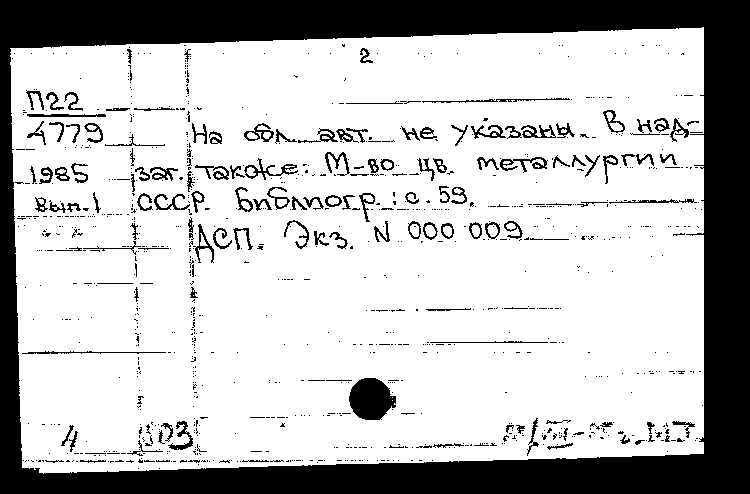 2
П22
4779
1985
Вып. 1
На обл. авт. не указаны. В над-
заг. также: М-во цв. металлургии
СССР. Библиогр.: с. 59.
ДСП. Экз. N 000 009
4